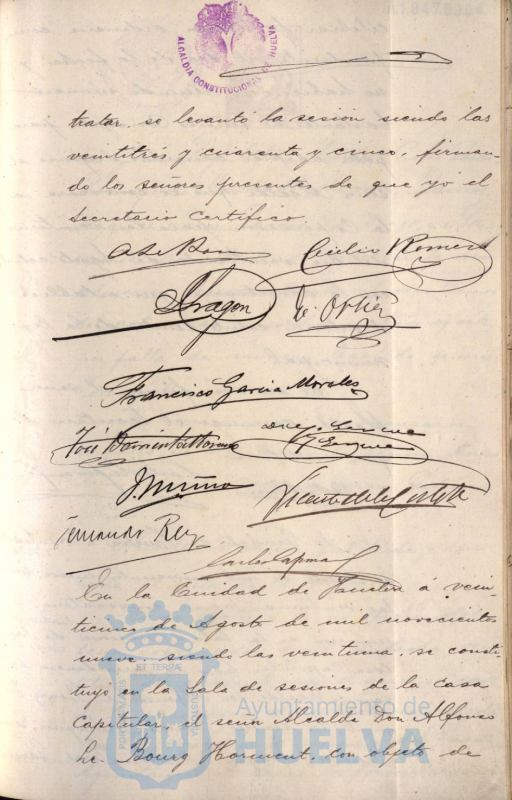 ALCALDIA CONSTITUCIONAL DE HUELVA
tratar, se levantó la sesión siendo las
veintitrés y cuarenta y cinco, firman-
do los señores presentes de que yo el
Secretario certifico.
Cecilio Romero
Aragon
Francisco Garcia Morales
José Barrientos Moreno
J. Muñoz
Vicente de la Corte
Fernando Rey
En la Ciudad de Huelva á vein-
ticinco de Agosto de mil novecientos
nueve, siendo las veintiuna, se consti-
tuyó en la Sala de sesiones de la casa
capitular, el señor Alcalde Don Alfonso
Le Bourg Horment, con objeto de
PORTUS MARIS ET TERRÆ CUSTODIA
Ayuntamiento de
HUELVA